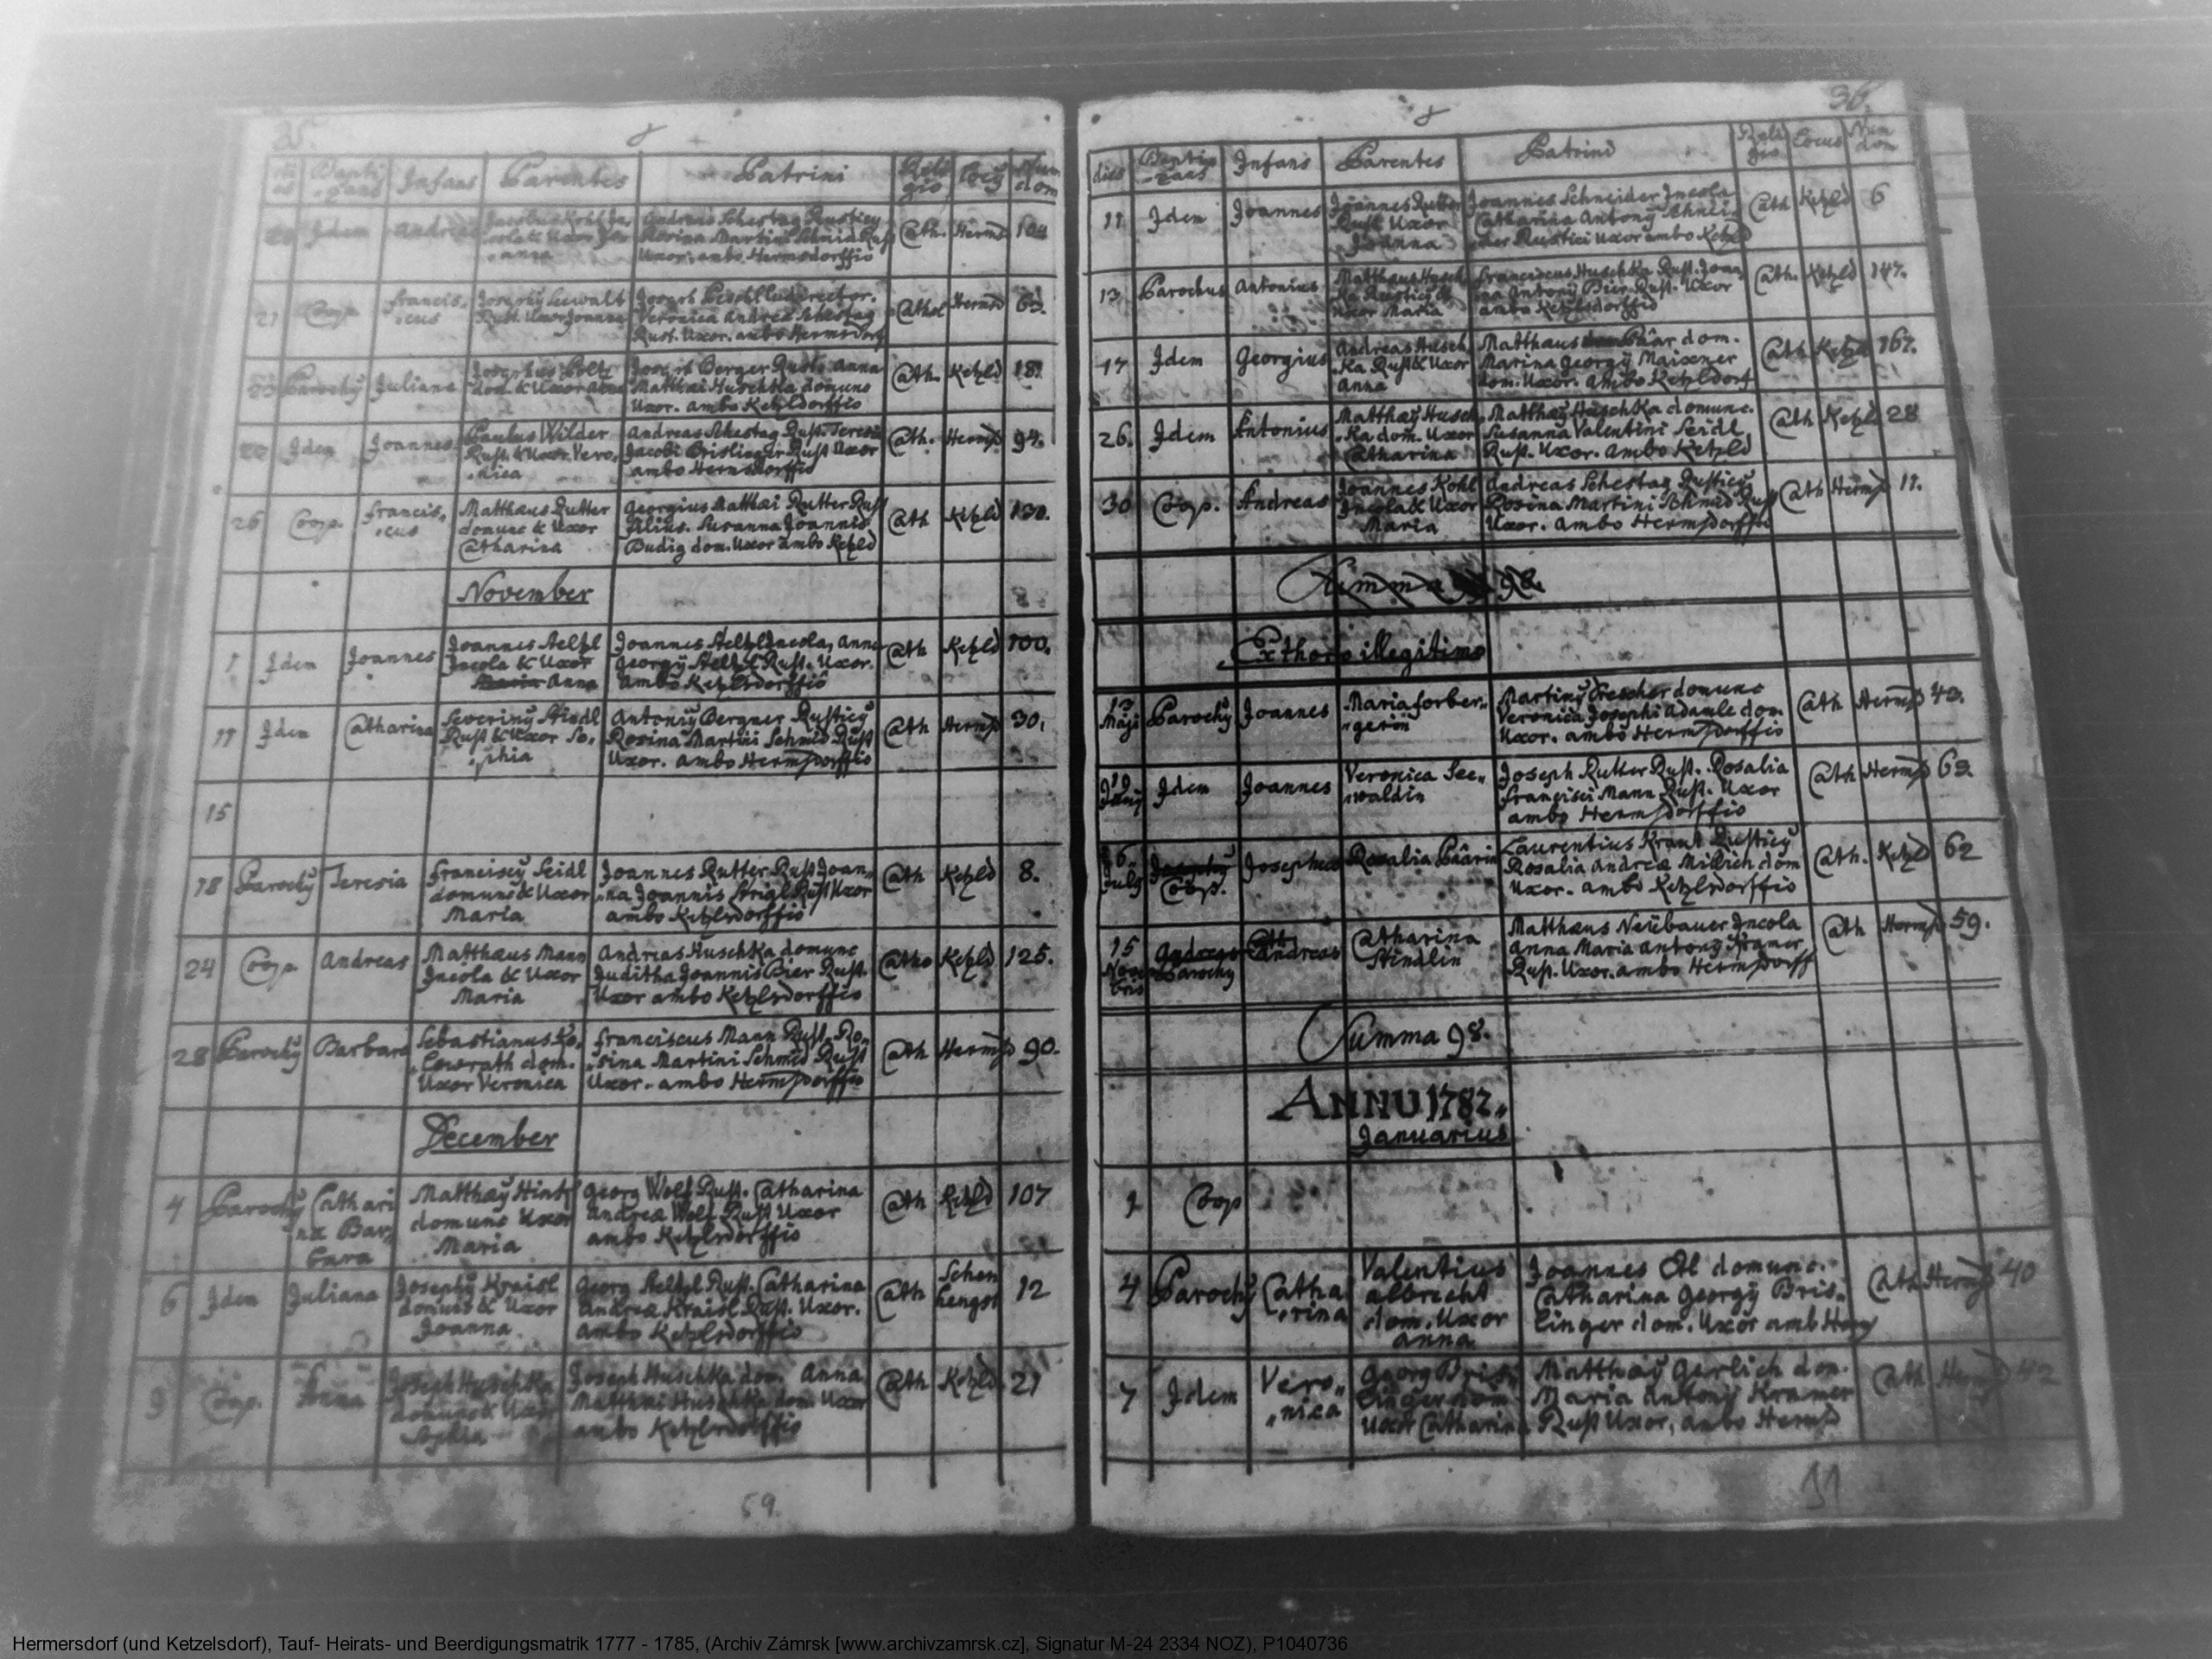 35.
dies Bapti-zans Infans Parentes Patrini Reli-gio Locus Num dom
20 Idem Andreas Jacobus Kohl In-
cola & Uxor Jo-
anna
Andreas Schestag Rusticy
Rosina Martini Schmid Rust
Uxor. ambo Hermsdorffio
Cath. Hermsd 104
21 Coop. Francis-
cus
Josephy Seewalt
Rust. Uxor Joanna
Joseph Peschl ludirector.
Veronica Andreæ Schestag
Rust. Uxor. ambo Hermsdorf
Cathol Hermsd 63.
23 Parochy Juliana
Josephus Poltz
dom. & Uxor Anna
Joseph Berger Rust. Anna
Matthæi Huschka domunc
Uxor. ambo Ketzldorffio
Cath. Ketzld 18.
Idem Joannes
Paulus Wilder
Rust. & Uxor Vero-
nica
Andreas Schestag Rust. Teresia
Jacobi Brislinger Rust Uxor
ambo Hermsdorffio
Cath. Hermsd 94.
26 Coop. Francis-
cus
Matthæus Rutter
domunc & Uxor
Catharina
Georgius Matthæi Rutter Rust
filius. Susanna Joannis
Budig dom. Uxor ambo Ketzld
Cath Ketzld 130.
November
1 Idem Joannes
Joannes Aeltzl
Incola & Uxor
Anna
Joannes Aeltzl Incola, Anna
Georgÿ Aeltzl Rust. Uxor.
ambo Ketzlsdorffio
Cath Ketzld 100.
11 Idem Catharina
Severinÿ Stindl
Rust & Uxor So-
phia
Antonÿ Bergner Rusticÿ
Rosina Martini Schmid Rust
Uxor. ambo Hermsdorffio
Cath Hermsd 30.
15
18 Parochÿ Teresia
Franciscÿ Seidl
domunc & Uxor
Maria
Joannes Rutter Rust Joan-
na Joannis Strigl Rust Uxor
ambo Ketzlsdorffio
Cath Ketzld 8.
24 Coop. Andreas
Matthæus Mann
Incola & Uxor
Maria
Andreas Huschka domunc
Juditha Joannis Bier Rust.
Uxor ambo Ketzlsdorffio
Catho Ketzld 125.
28 Parochÿ Barbara
Sebastianus Ko-
dom.
Uxor Veronica
Franciscus Mann Rust. Ro-
sina Martini Schmid Rust
Uxor. ambo Hermsdorffio
Cath Hermsd 90.
December
4 Parochÿ Cathari
na Bar
bara
Matthæÿ Hintz
domunc Uxor
Maria
Georg Wolf Rust. Catharina
Andreæ Wolf Rust Uxor
ambo Ketzlsdorffio
Cath Ketzld 107
6 Idem Juliana
Josephÿ Kraisl
domunc & Uxor
Joanna
Georg Aeltzl Rust. Catharina
Andreæ Kraisl Rust. Uxor.
ambo Ketzlsdorffio
Cath Schön
hengst 12
9 Coop. Anna
Joseph Huschka
domunc & Uxor
Sophia
Joseph Huschka dom. Anna
Matthæi Huschka dom Uxor
ambo Ketzlsdorffio
Cath Ketzld. 21
59.
36.
dies Bapti-zans Infans Parentes Patrini Reli gio Locus Num dom
11 Idem Joannes
Joannes Rutter
Rust Uxor
Joanna
Joannes Schneider Incola
Catharina Antonÿ Schnei-
der Rustici Uxor ambo Ketzld
Cath Ketzld 6
13 Parochus Antonius
Matthæus Husch
ka Rusticÿ &
Uxor Maria
Franciscus Huschka Rust. Joan-
na Antonÿ Bier Rust. Uxor
ambo Ketzlsdorffio
Cath. Ketzld 147.
17 Idem Georgius
Andreas Husch
ka Rust & Uxor
Anna
Matthæus Päar dom.
Marina Georgÿ Maixner
dom. Uxor. ambo Ketzldorf
Cath Ketzld 167.
26. Idem Antonius
Matthæÿ Husch-
ka dom. Uxor
Catharina
Matthæÿ Huschka domunc.
Susanna Valentini Seidl
Rust. Uxor. ambo Ketzld
Cath Ketzld 28
30 Coop. Andreas
Joannes Kohl
Incola & Uxor
Maria
Andreas Schestag Rusticÿ
Rosina Martini Schmid Rust
Uxor. ambo Hermsdorffio
Cath Hermsd 11.
Summa 98.
Ex thoro illegitimo
13
Maÿi Parochÿ Joannes
Maria Forber-
gerin
Martinÿ Drescher domunc
Veronica Josephi Adamle dom
Uxor. ambo Hermsdorffio
Cath Hermsd 43.
19
Junÿ Idem Joannes
Veronica See-
waldin
Joseph Rutter Rust. Rosalia
Francisci Mann Rust. Uxor
ambo Hermsdorffio
Cath Hermsd 63.
16
Julÿ Coop. Josephus
Rosalia Päärin
Laurentius Kraut Rusticÿ
Rosalia Andreæ Millich dom
Uxor. ambo Ketzlsdorffio
Cath. Ketzld 62
15
Novem
bris Parochÿ Andreas
Catharina
Stindlin
Matthæus Neübauer Incola
Anna Maria Antonÿ Kramer
Rust. Uxor. ambo Hermsdorff
Cath Hermsd 59.
Summa 98.
ANNU 1782.
Januarius
1 Coop
4 Parochÿ Catha
rina
Valentius
Albrecht
dom. Uxor
Anna
Joannes Ol domunc.
Catharina Georgÿ Bris-
linger dom. Uxor amb Herm
Cath Hermsd 40
7 Idem Vero-
nica
Georg Bris-
linger dom
Uxor Catharina
Matthæÿ Gerlich dom.
Maria Antonÿ Kramer
Rust Uxor, ambo Hermsd
Cath Hermsd 42
31
Hermersdorf (und Ketzelsdorf), Tauf- Heirats- und Beerdigungsmatrik 1777 - 1785, (Archiv Zámrsk [www.archivzamrsk.cz], Signatur M-24 2334 NOZ), P1040736